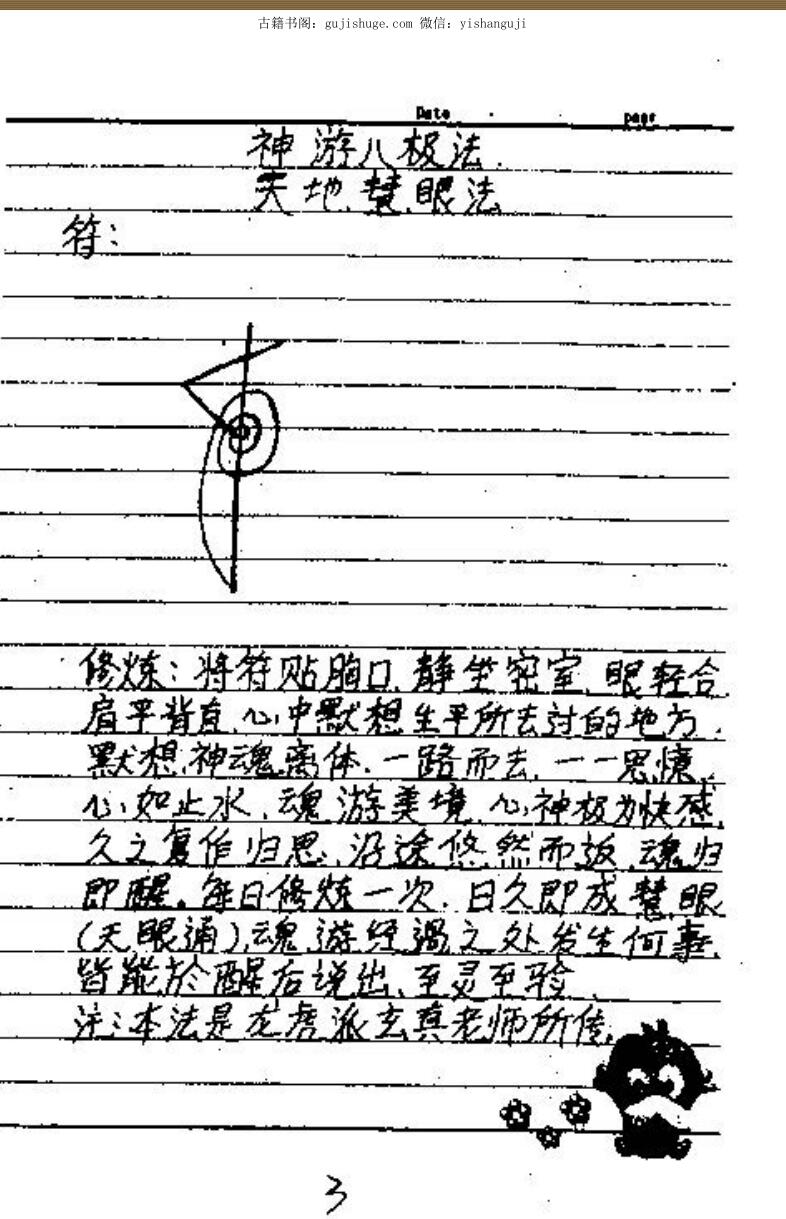 古籍书阁：gujishuge.com 微信：yishanguji
Date page
神游八极法
天地慧眼法
符：
修炼：将符贴胸口、静坐密室、眼轻合、
肩平背直、心中默想生平所去过的地方、
默想、神魂离体、一路而去、一一思憶、
心如止水、魂游美境、心神极为快感、
久之复作归思、沿途悠然而返、魂归
即醒。每日修炼一次、日久即成慧眼
(天眼通)、魂游经过之处发生何事、
皆能於醒后说出、至灵至验、
注：本法是龙虎派玄真老师所传、
3